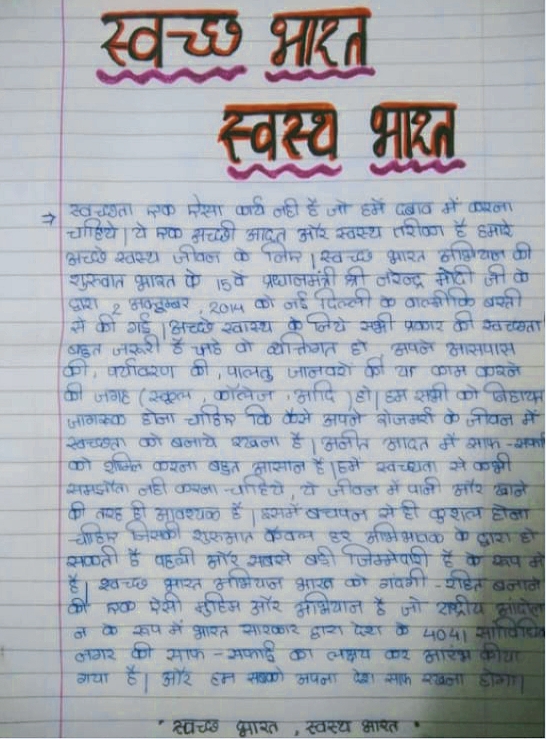 स्वच्छ भारत
स्वस्थ भारत
→ स्वच्छता एक ऐसा कार्य नही है जो हमें दबाव में करना
चाहिये। ये एक सच्छी आदत और स्वस्थ तरीका है हमारे
अच्छे स्वस्थ जीवन के लिए। स्वच्छ भारत अभियान की
शुरुवात भारत के 15वे प्रधानमंत्री श्री नरेन्द्र मोदी जी के
द्वारा 2 अक्टूम्बर, 2014 को नई दिल्ली के वाल्मीकि बस्ती
से की गई। अच्छे स्वास्थ के लिये सभी प्रकार की स्वच्छता
बहुत जरूरी है चाहे वो व्यक्तिगत हो, अपने आसपास
की, पर्यावरण की, पालतु जानवरो की या काम करने
की जगह (स्कूल, कॉलेज, आदि) हो। हम सभी को निहायत
जागरुक होना चाहिए कि कैसे अपने रोजमर्रा के जीवन में
स्वच्छता को बनाये रखना है। अपनी आदत में साफ-सफाई
को शामिल करना बहुत आसान है। हमें स्वच्छता से कभी
समझौता नही करना चाहिये, ये जीवन में पानी और खाने
की तरह ही आवश्यक है। इसमें बचपन से ही कुशल होना
चाहिए जिसकी शुरुआत केवल हर अभिभावक के द्वारा हो
सकती है पहली और सबसे बडी जिम्मेदारी है के रूप में
है। स्वच्छ भारत अभियान भारत को गंदगी-रहित बनाने
की एक ऐसी मुहिम और अभियान है जो राष्ट्रीय आंदोल
न के रूप में भारत सारकार द्वारा देश के 4041 सांविधिक
नगर की साफ-सफाई का लक्ष्य कर आरंभ कीया
गया है। और हम सबको अपना देश साफ रखना होगा।
• स्वच्छ भारत, स्वस्थ भारत •